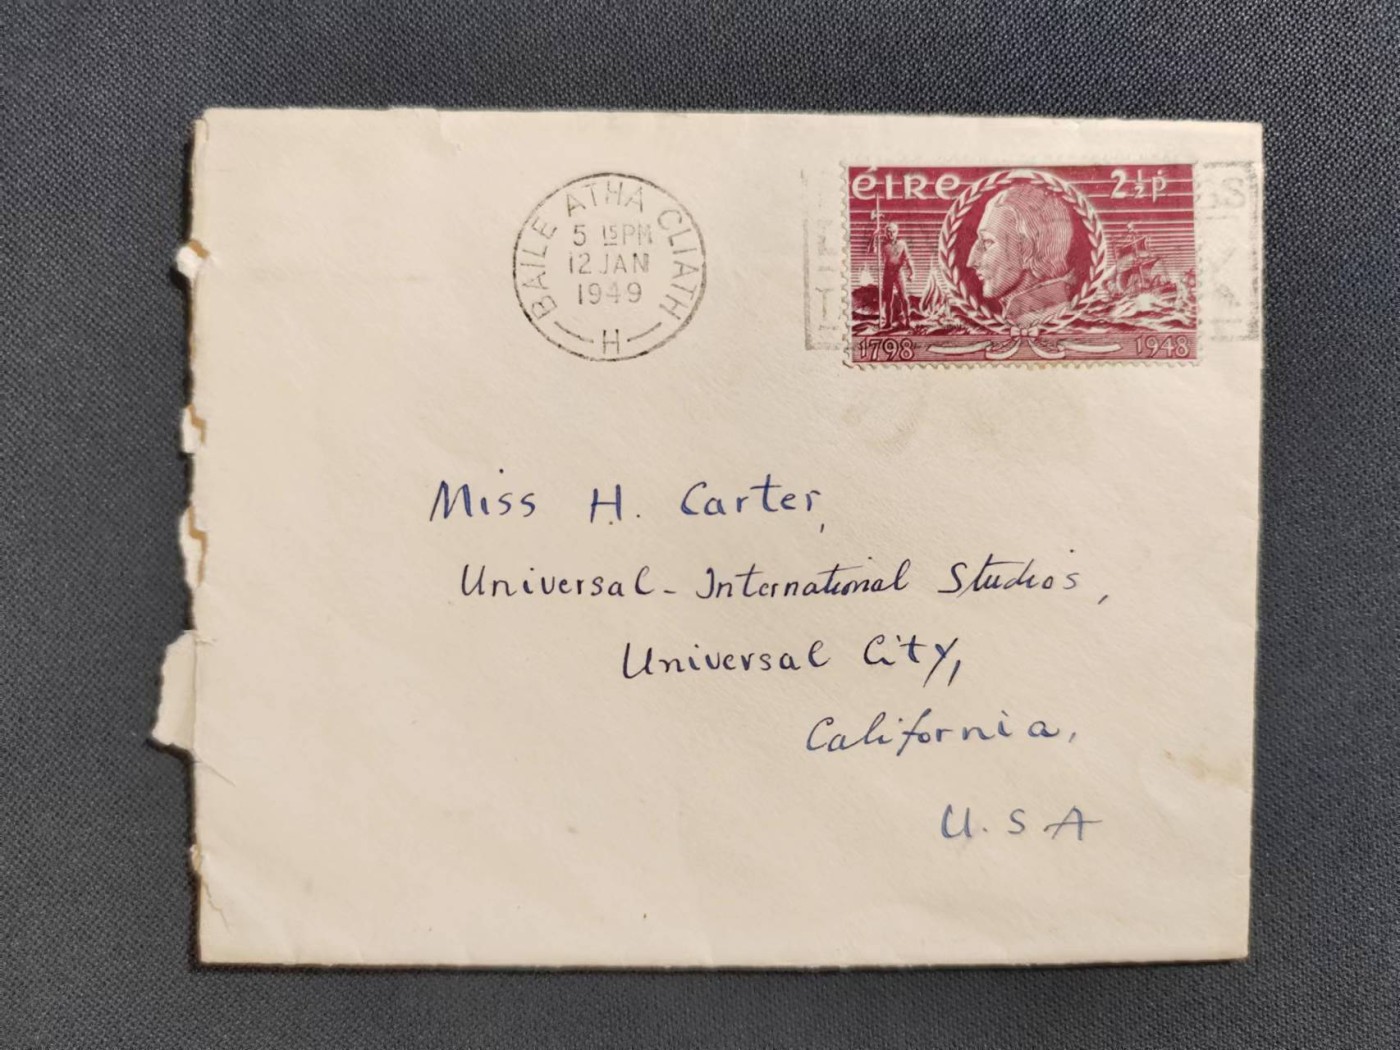 BAILE ATHA CLIATH
5 15PM
12 JAN
1949
H
éIRe 2½p
1798 1948
Miss H. Carter,
Universal-International Studios,
Universal City,
California,
U.S A